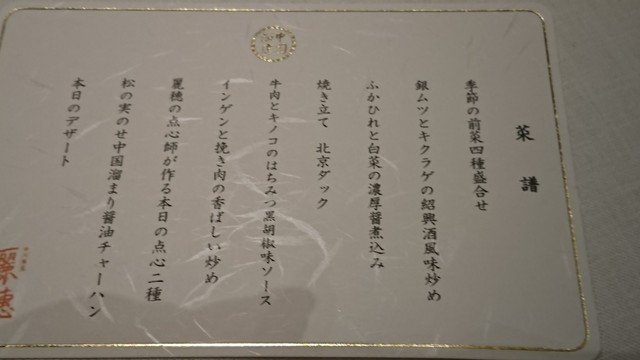 菜譜
季節の前菜四種盛合せ
銀ムツとキクラゲの紹興酒風味炒め
ふかひれと白菜の濃厚醤煮込み
焼き立て 北京ダック
牛肉とキノコのはちみつ黒胡椒味ソース
インゲンと挽き肉の香ばしい炒め
麗穂の点心師が作る本日の点心二種
松の実のせ中国溜まり醤油チャーハン
本日のデザート